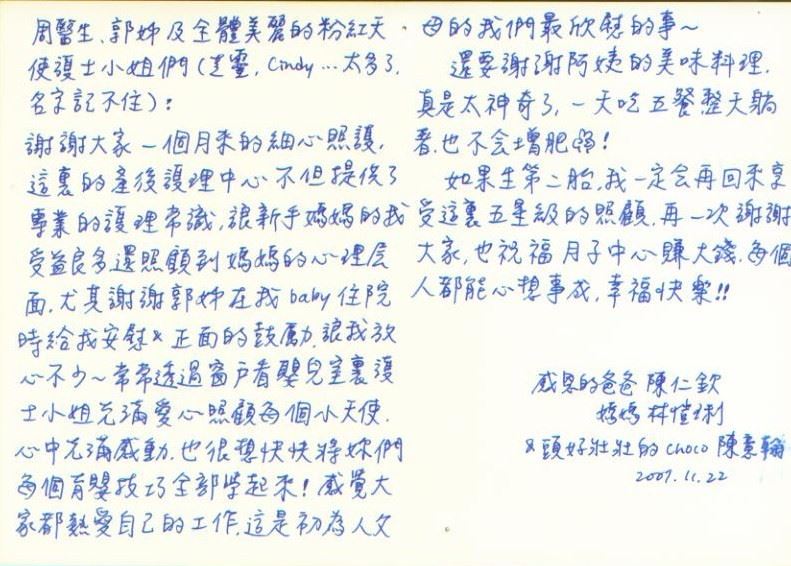 周醫生、郭姊及全體美麗的粉紅天
使護士小姐們(走靈, Cindy…太多了,
名字記不住):
謝謝大家一個月來的細心照護,
這裏的產後護理中心不但提供了
專業的護理常識,讓新手媽媽的我
受益良多還照顧到媽媽的心理层
面,尤其謝謝郭姊在我baby住院
時給我安慰&正面的鼓勵,讓我放
心不少~常常透過窗戶看嬰兒室裏護
士小姐充滿愛心照顧每個小天使,
心中充滿感動,也很想快快將妳們
每個育嬰技巧全部學起來!感覺大
家都熱愛自己的工作,這是初為人父
母的我們最欣慰的事~
還要謝謝阿姨的美味料理,
真是太神奇了,一天吃五餐,整天躺
著,也不会增肥喲!
如果生第二胎,我一定会再回來享
受這裏五星級的照顧,再一次謝謝
大家,也祝福月子中心賺大錢,每個
人都能心想事成,幸福快樂!!
感恩的爸爸 陳仁欽
媽媽 林愷琍
&頭好壯壯的choco 陳意翰
2007.11.22